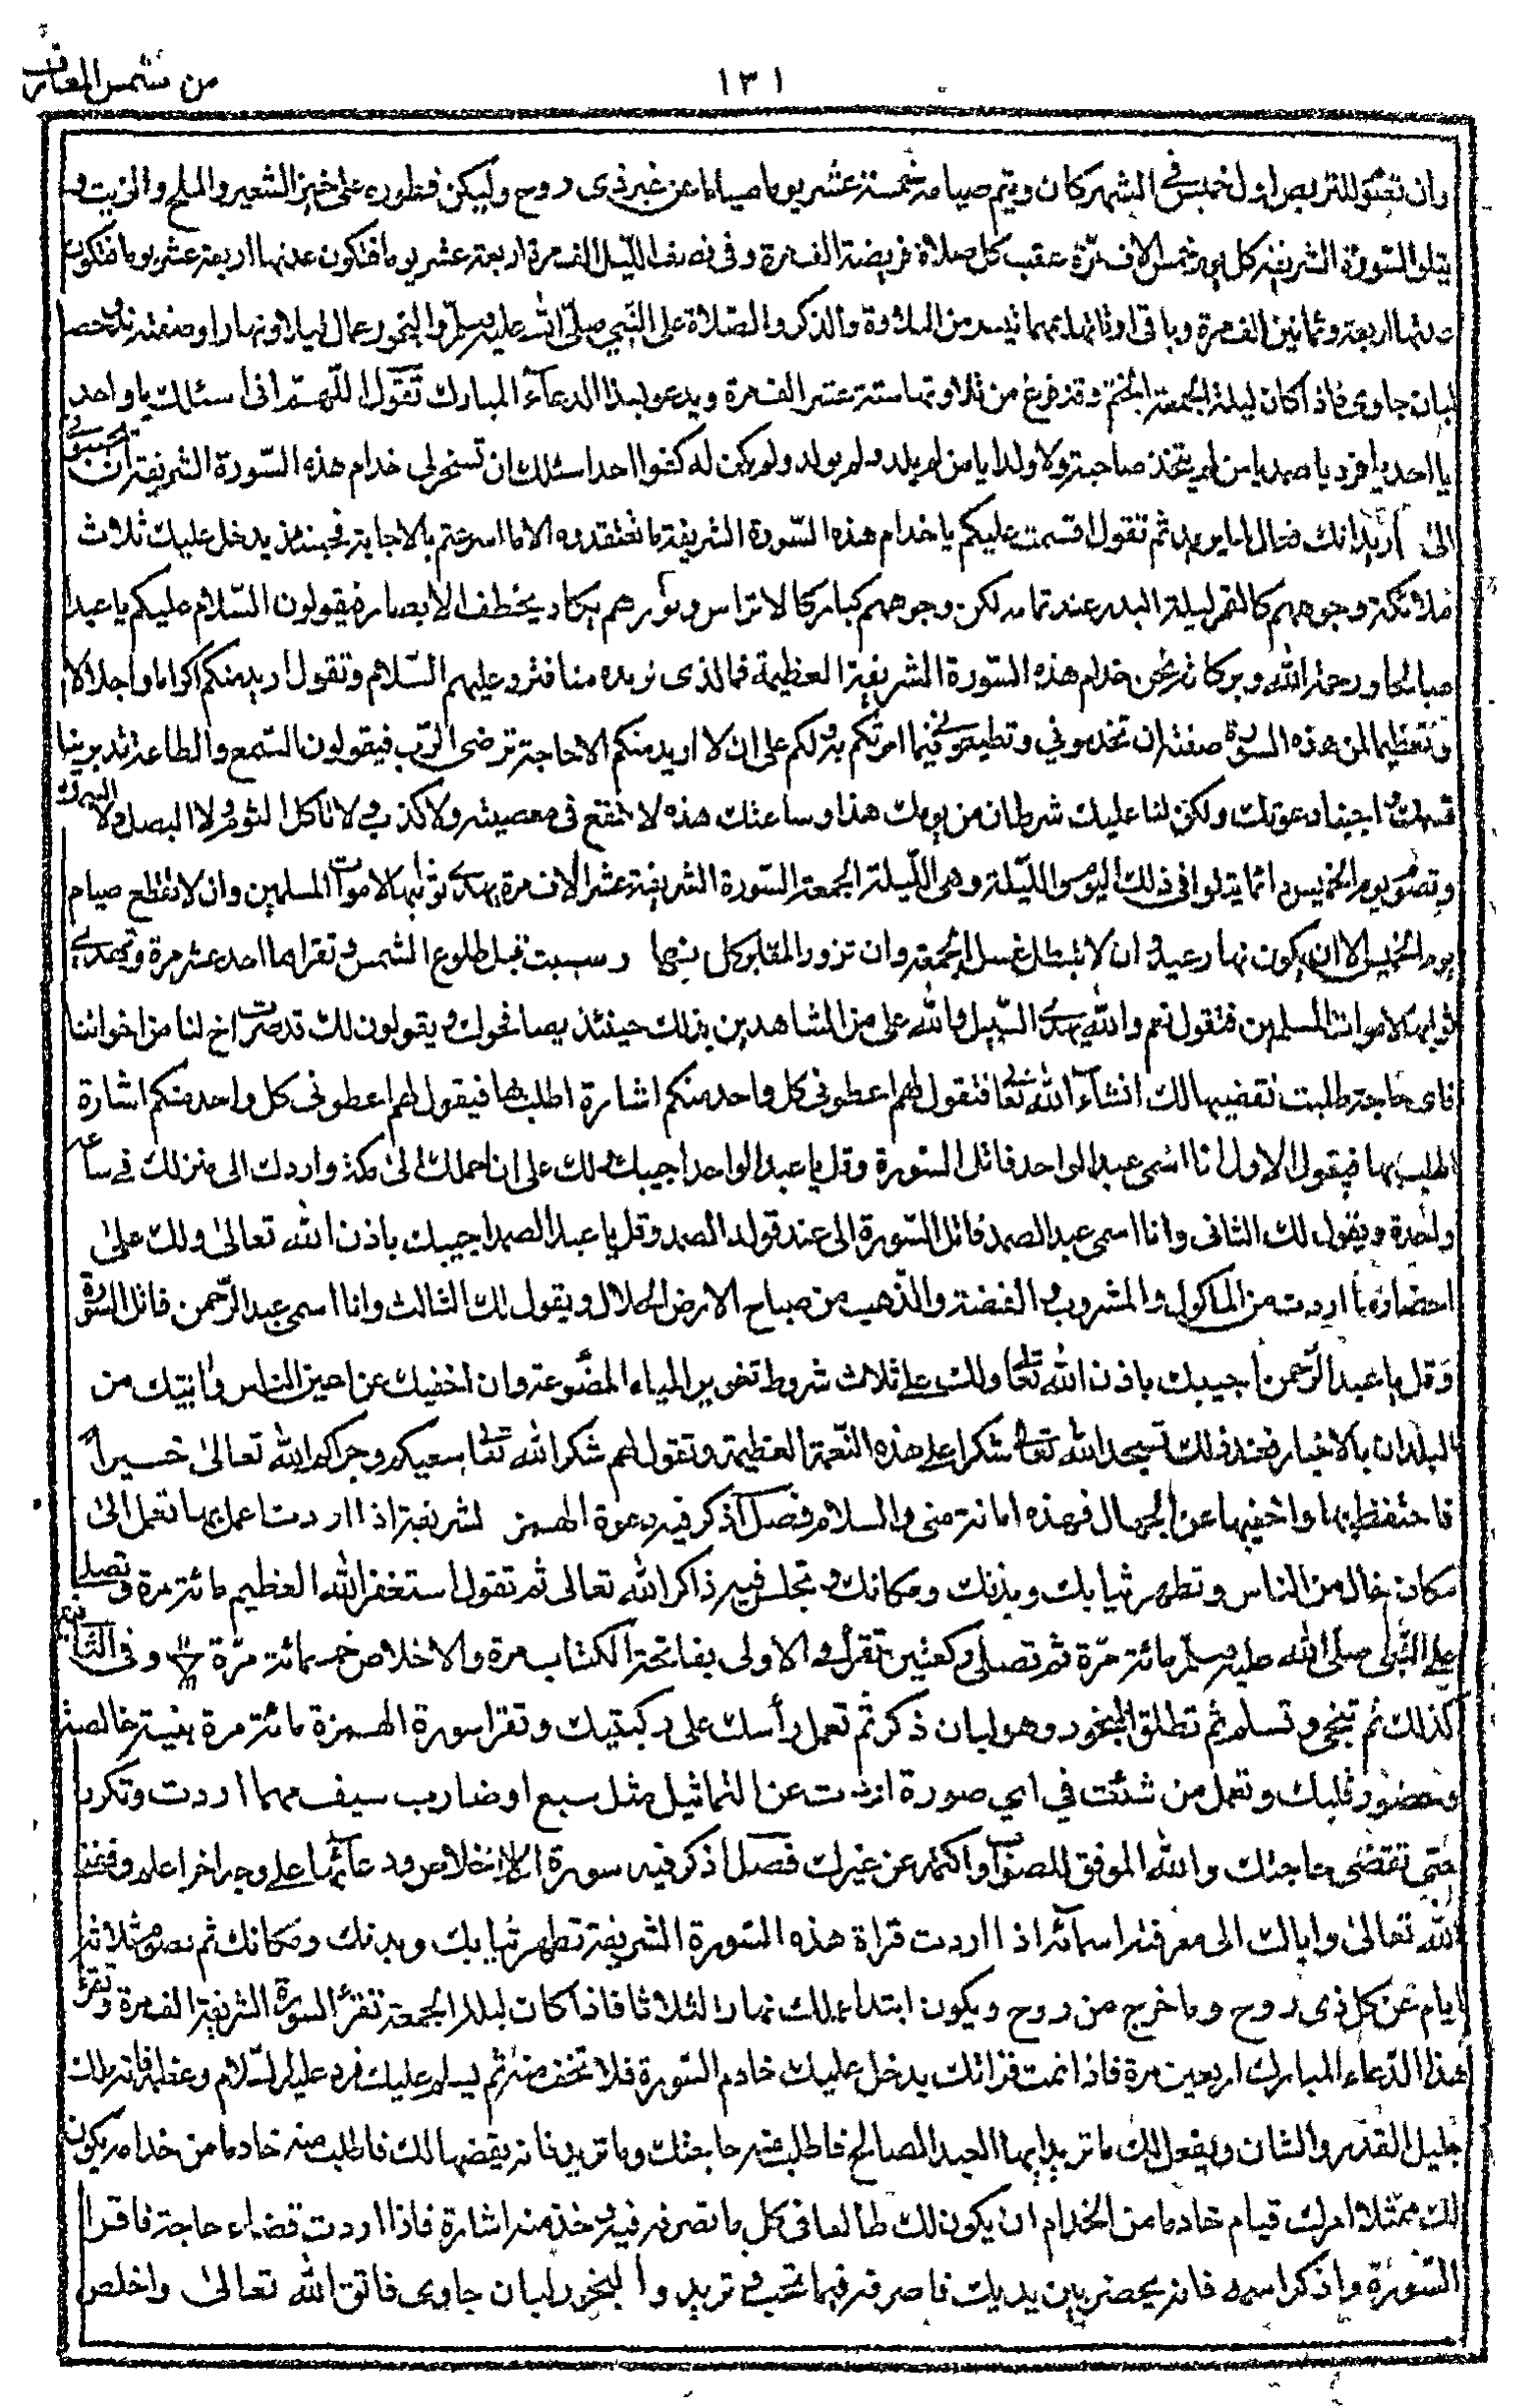 من شمس المعارف
١٣١
وان تعتزل للتريض اول خميس في الشهر كان ويتم صيامه خمسة عشر يوما صياما عن غير ذى روح وليكن فطوره على خبز الشعير والملح والزيت و
يتلو السورة الشريفة كل يوم خمس الاف مرة عقب كل صلاة فريضة الف مرة وفى نصف الليل الف مرة اربعة عشر يوما فتكون عدتها اربعة عشر يوما فتكون
اربعة وثمانين الف مرة وباقى اوقاتها مهما تيسر من التلاوة والذكر والصلاة على النبي صلى الله عليه وسلم والبخور عمال ليلا ونهارا وصفته ند حصا
لبان جاوى فاذا كان ليلة الجمعة الختم وقد فرغ من تلاوتها ستة عشر الف مرة ويدعو بهذا الدعآء المبارك تقول اللهم انى اسئلك يا واحد
يا احد يا فرد يا صمد يا من لم يتخذ صاحبة ولا ولدا يا من لم يلد ولم يولد ولم يكن له كفوا احد اسئلك ان تسخر لى خدام هذه السورة الشريفة ان يجيبونى
الى اريد انك فعال لما يريد ثم تقول اقسمت عليكم يا خدام هذه السورة الشريفة ما تعتقدوه الا ما اسرعتم بالاجابة فحينئذ يدخل عليك ثلاث
ملائكة وجوههم كالقمر ليلة البدر عند تمامه لكن وجوههم كبار كالاتراس ونورهم يكاد يخطف الابصار فيقولون السلام عليكم يا عبدا
صالحا ورحمة الله وبركاته نحن خدام هذه السورة الشريفة العظيمة فما الذى تريده منا فترد عليهم السلام وتقول اريد منكم اكراما واجلالا
وتعظيما لمن هذه السورة صفته ان تخدمونى وتطيعونى فيما امرتكم به ولكم على ان لا اريد منكم الا حاجة ترضى الرب فيقولون السمع والطاعة لله ربنا
قسمك اجبنا دعوتك ولكن لنا عليك شرطان من يومك هذا وساعتك هذه لا تقع فى معصية ولا كذب ولا تاكل الثوم ولا البصل ولا السمك
وتصوم يوم الخميس دائما يتلوا فى ذلك اليوم والليلة وهى الليلة الجمعة السورة الشريفة عشر الاف مرة يهدى ثوابها لاموات المسلمين وان لا تقطع صيام
يوم الخميس الا ان يكون نهار عيد وان لا تبطل غسل الجمعة وان تزور المقابر كل سبت قبل طلوع الشمس وتقراها احد عشر مرة وتهدى
ثوابها لاموات المسلمين فتقول نعم والله يهدى السبيل والله على من الشاهدين بذلك حينئذ يصافحوك ويقولون لك قد صرت اخ لنا من اخواننا
فاى حاجة طلبت نقضيها لك انشاء الله تعا فتقول لهم اعطونى كل واحد منكم اشارة اطلبه بها فيقول لهم اعطونى كل واحد منكم اشارة
اطلبه بها فيقول الاول انا اسمى عبد الواحد فاتل السورة وقل يا عبد الواحد اجيبك ولك على ان احملك الى مكة واردك الى منزلك فى ساعة
واحدة ويقول لك الثانى وانا اسمى عبد الصمد فاتل السورة الى عند قوله الصمد وقل يا عبد الصمد اجيبك باذن الله تعالى ولك على
احضار ما اردت من الماكول والمشروب والفضة والذهب من مباح الارض الحلال ويقول لك الثالث وانا اسمى عبد الرحمن فاتل السورة
وقل يا عبد الرحمن اجيبك باذن الله تعا ولك على ثلاث شروط تغوير المياه المصنوعة وان اخفيك عن اعين الناس واتيتك من
البلدان بالاخبار فعند ذلك تسجد الله تعا شكرا على هذه النعمة العظيمة وتقول لهم شكر الله تعا سعيكم وجزاكم الله تعالى خيرا
فاحتفظ بها واخفيها عن الجهال فهذه امانة منى والسلام فصل اذكر فيه دعوة الهمزة الشريفة اذا اردت عمل بها تعمل الى
مكان خال من الناس وتطهر ثيابك وبدنك ومكانك وتجلس فيه ذاكر الله تعالى ثم تقول استغفر الله العظيم مائة مرة وتصلى
على النبى صلى الله عليه وسلم مائة مرة ثم تصلى ركعتين تقرأ فى الاولى بفاتحة الكتاب مرة والاخلاص خمسمائة مرة وفى الثانية
كذلك ثم تبخى وتسلم ثم تطلق البخور وهو لبان ذكر ثم تعمل رأسك على ركبتيك وتقرا سورة الهمزة مائة مرة بنية خالصة
وحضور قلبك وتعمل من شئت في اي صورة اردت عن التماثيل مثل سبع او ضارب سيف مهما اردت وتكرر
حتى تقضى حاجتك والله الموفق للصواب واكتمه عن غيرك فصل اذكر فيه سورة الاخلاص ودعائها على وجه اخر اعلم وفقنى
الله تعالى واياك الى معرفة اسمائه اذا اردت قراة هذه السورة الشريفة تطهر ثيابك وبدنك ومكانك ثم تصوم ثلاثة
ايام عن كل ذى روح وما خرج من روح ويكون ابتداء عملك نهار الثلاثا فاذا كان ليلة الجمعة تقرأ السورة الشريفة الف مرة وتقرأ
هذا الدعاء المبارك اربعين مرة فاذا تمت قرائتك يدخل عليك خادم السورة فلا تخف منه ثم يسلم عليك فرد عليه السلام وعظمه فانه ملك
جليل القدر والشان ويفعل لك ما تريد ايها العبد الصالح فاطلب منه حاجتك وما تريد فانه يقضها لك فاطلب منه خادما من خدامه يكون
لك ممتثلا امرك قيام خادما من الخدام ان يكون لك طائعا فى كل ما تصرفه فيه وخذ منه اشارة فاذا اردت قضاء حاجة فاقرا
السورة واذكر اسمه فانه يحضر بين يديك فاصرفه فيما تحب وتريد والبخور لبان جاوى فاتق الله تعالى واخلص